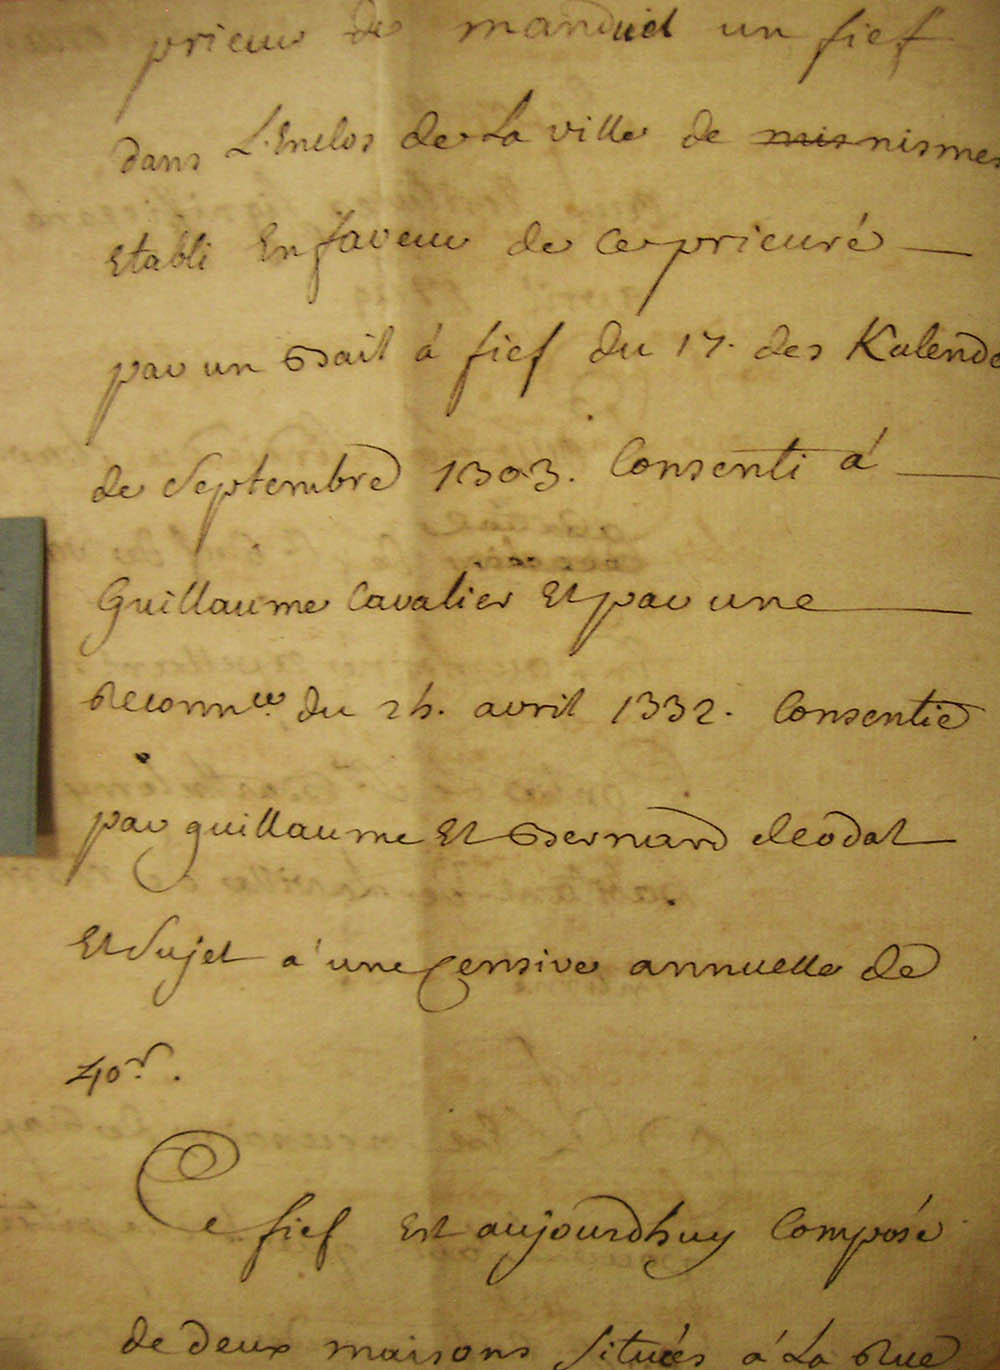 prieur de manduel un fief
dans L'Enclos de La ville de mis nismes
Etabli En faveur de ce prieuré
par un Bail à fief du 17. des Kalende
de Septembre 1303. Consenti à
Guillaume Cavalier Et par une
Reconnce. du 24. avril 1332. Consentie
par guillaume Et Bernard deodat
Et Sujet à une Censive annuelle de
40s.
Ce fief Est aujourdhuy Composé
de deux maisons Situées à La Rue